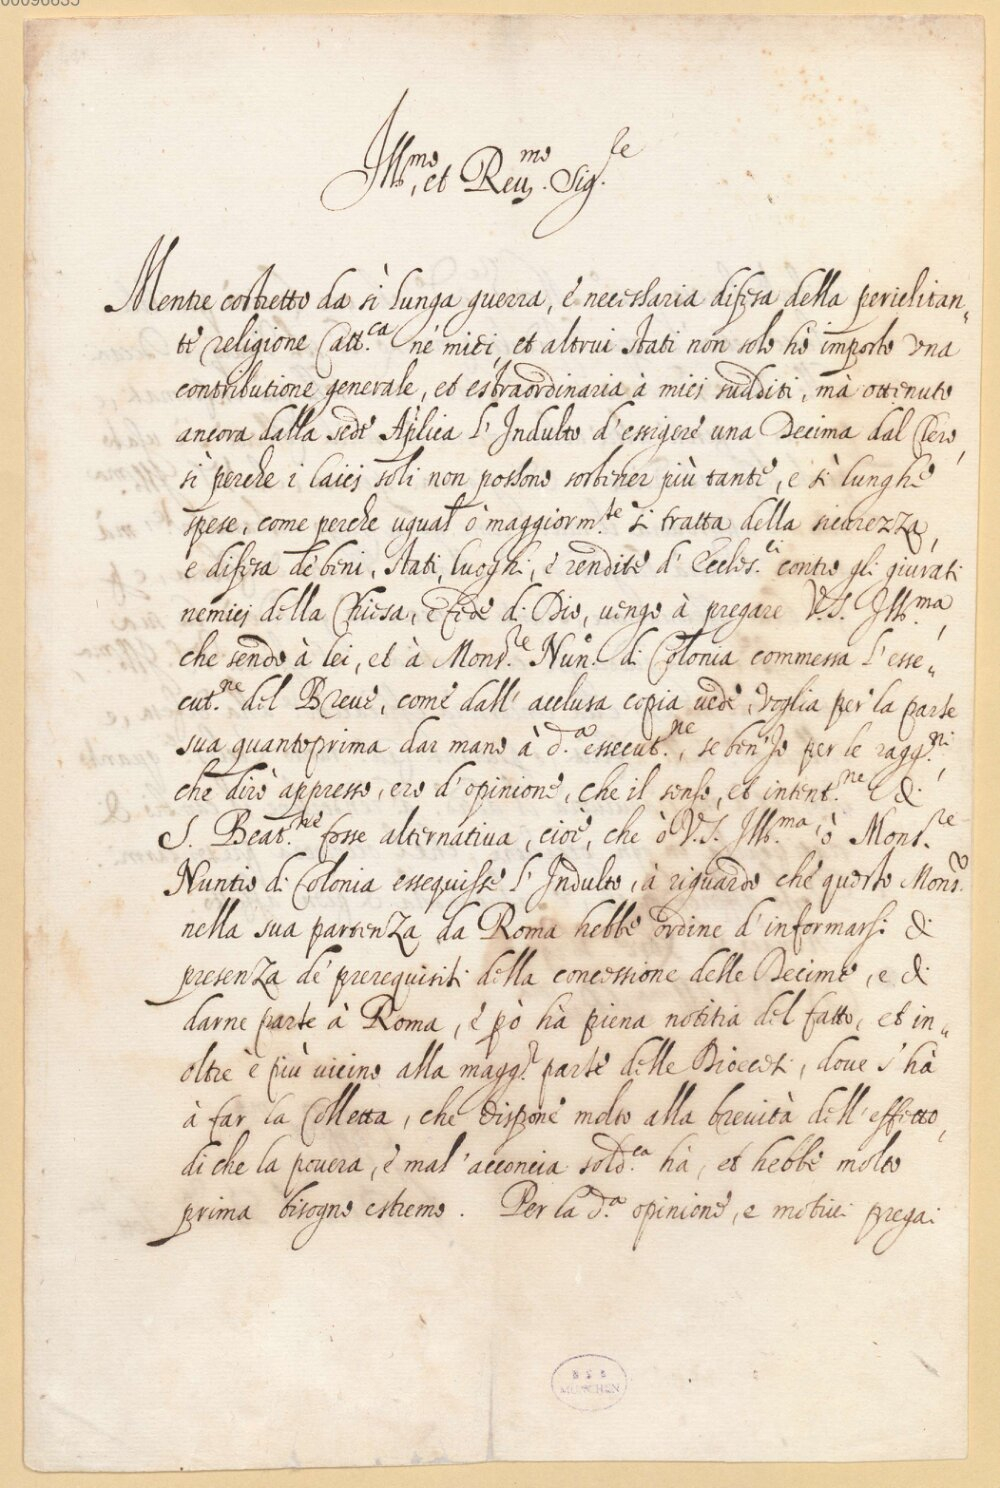 00096635
Ill.mo et Reu.mo Sig.re
Mentre costretto da sì lunga guerra, è necessaria difesa della periclitan-
te religione Catt.ca ne' miei, et altrui stati non solo hò imposto una
contributione generale, et estraordinaria à miei sudditi, mà ottenuto
ancora dalla sede Ap'lica l'Indulto d'essigere una Decima dal Clero,
sì perche i laici soli non possono sostener più tante, e sì lunghe
spese, come perche ugual ò maggiorm.te si tratta della sicurezza,
e difesa de' beni, stati, luoghi, è rendite d'Eccles.ci contro gli giurati
nemici della Chiesa, è fede di Dio, vengo à pregare V.S. Ill.ma,
che sendo à lei, et à Mons.re Nun.o di Colonia commessa l'esse-
cut.ne del Breve, come dall'acclusa copia vede, voglia per la parte
sua quantoprima dar mano à d.a essecut.ne, se ben'Jo per le ragg.ni
che dirò appresso, ero d'opinione, che il senso, et intent.ne di
S. Beat.ne fosse alternativa, cioè, che ò V.S. Ill.ma, ò Mons.re
Nuntio di Colonia essequisse l'Indulto, à riguardo che questo Mons.r
nella sua partenza da Roma hebbe ordine d'informarsi di
presenza de' prerequisiti della concessione delle Decime, e di
darne parte à Roma, è pò hà piena notitia del fatto, et in-
oltre è più vicino alla magg.r parte delle Diocesi, dove s'hà
à far la Colletta, che dispone molto alla brevità dell'effetto,
di che la povera, è mal'acconcia sold.ca hà, et hebbe molto
prima bisogno estremo. Per la d.a opinione, e motivi pregai
BSB
MÜNCHEN